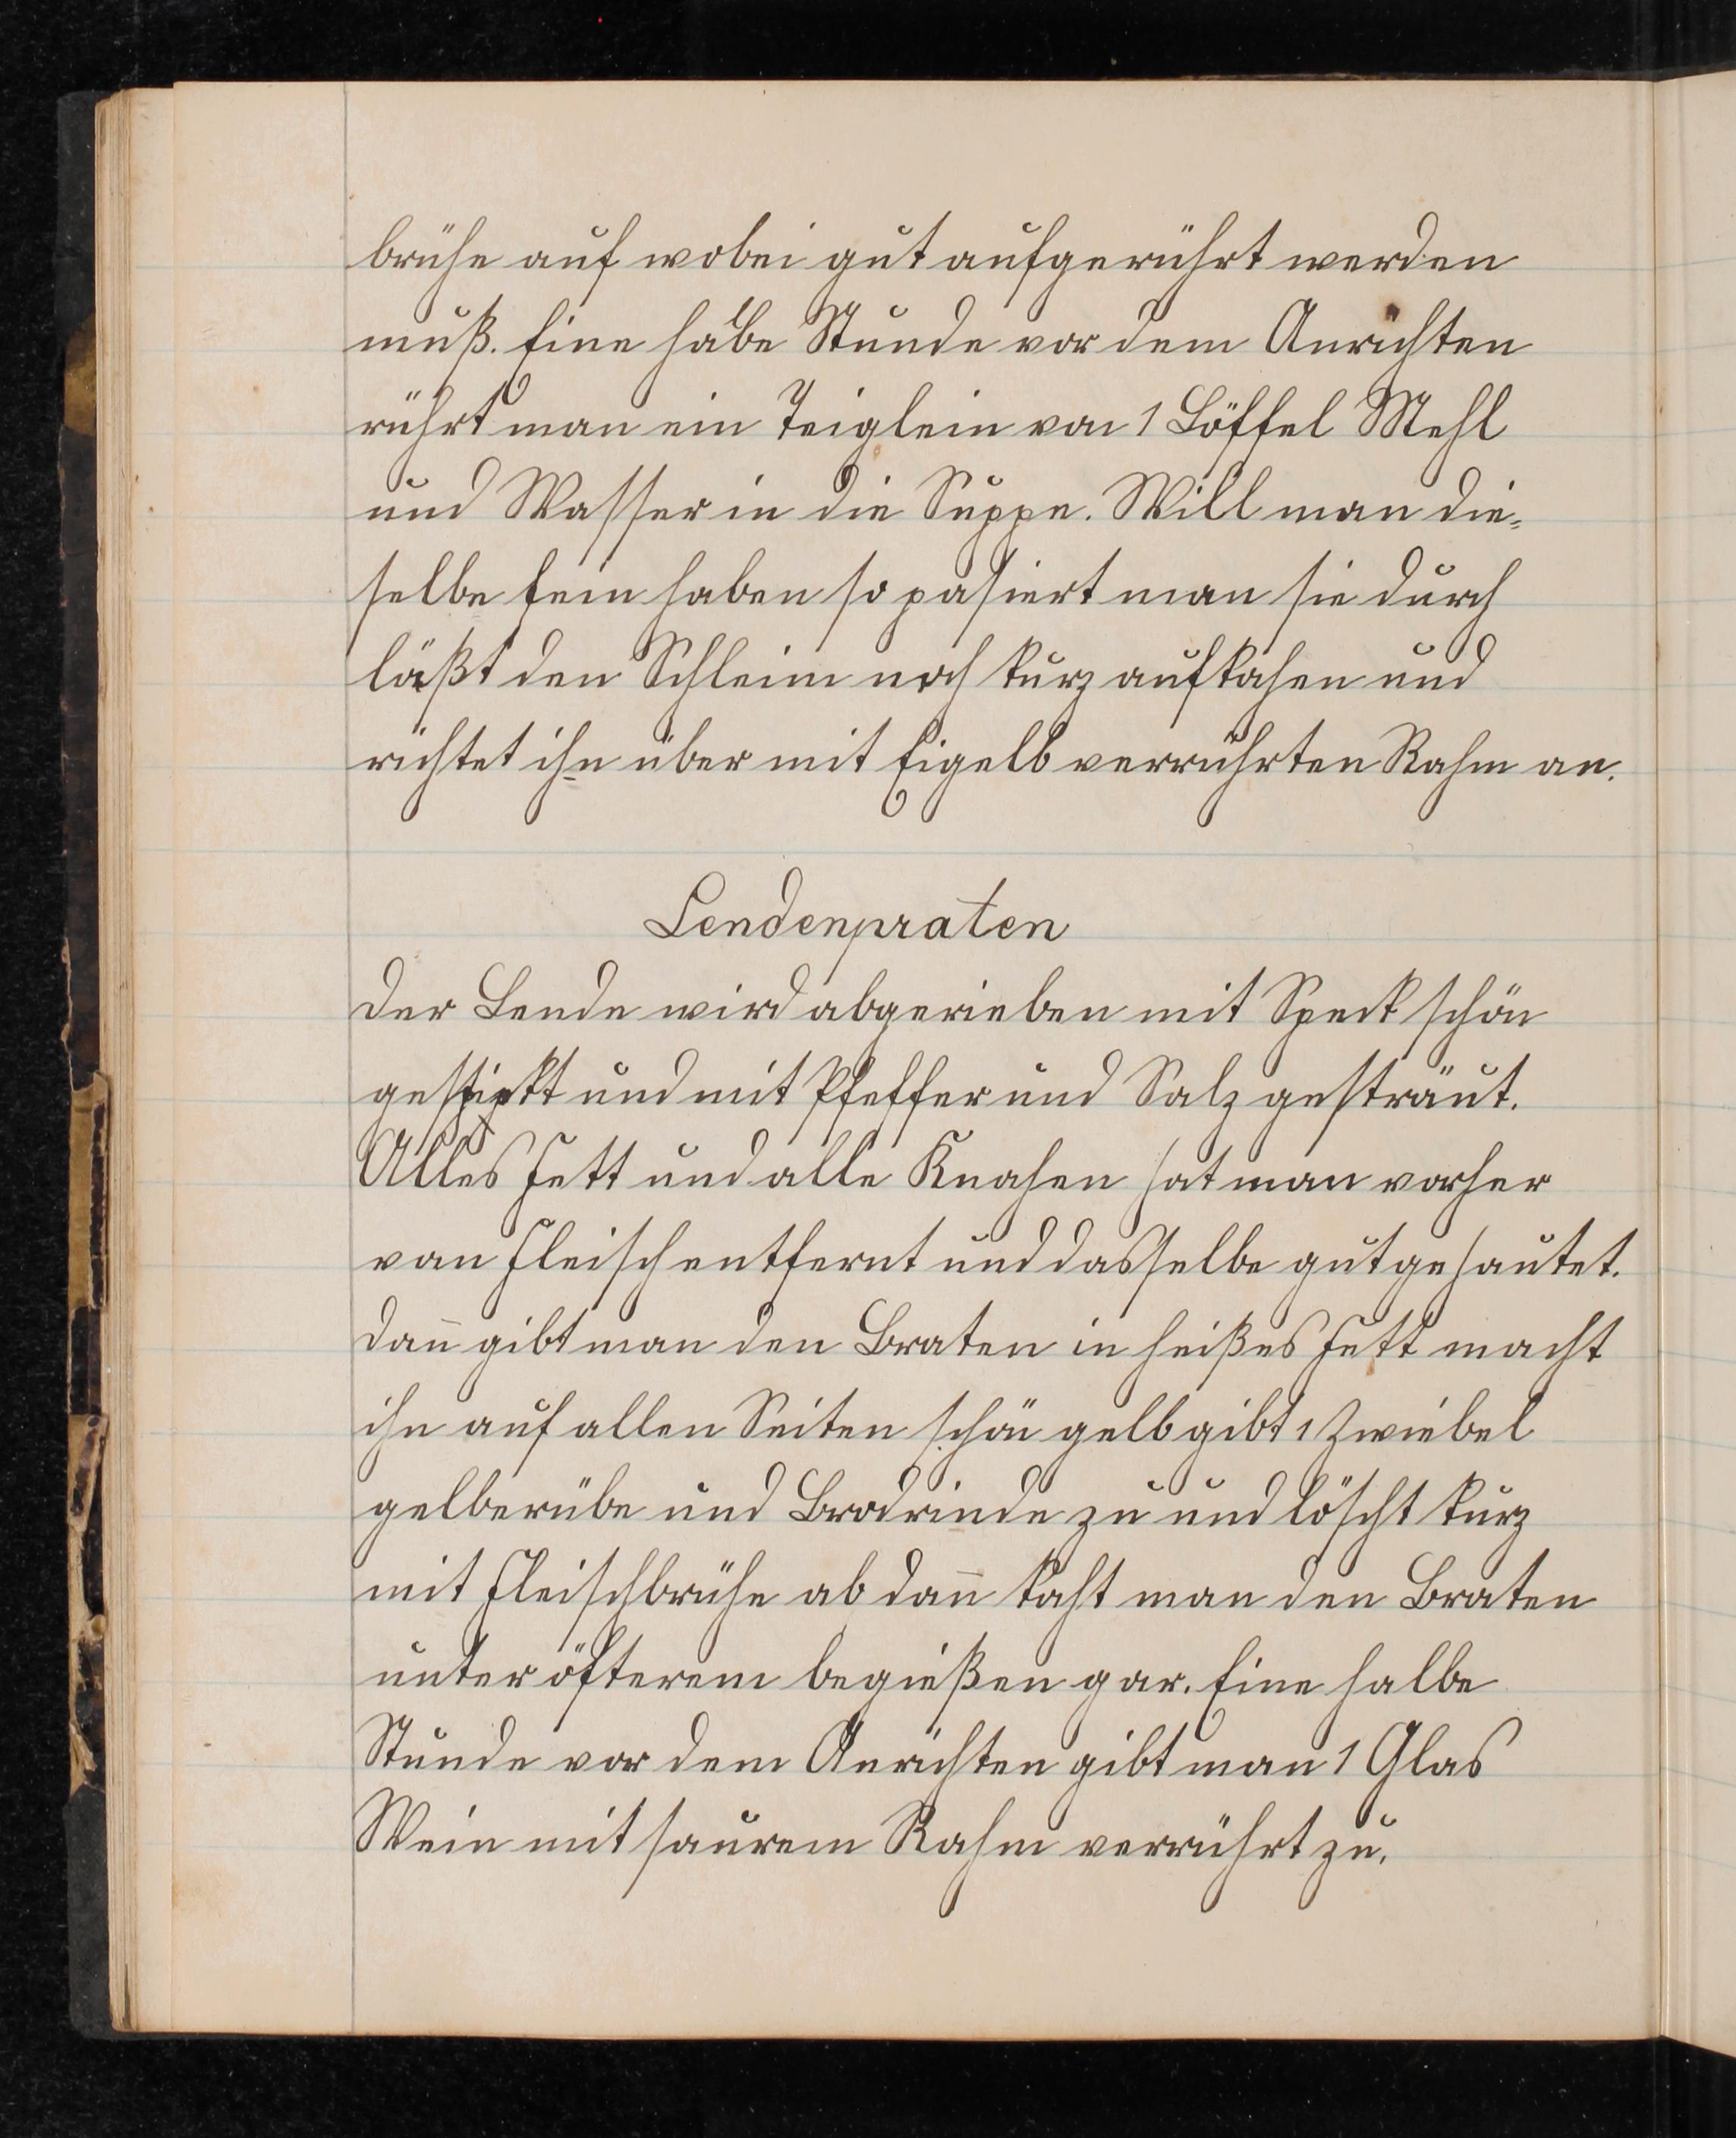 brühe auf wobei gut aufgerührt werden
muß. Eine halbe Stunde vor dem Anrichten
rührt man ein Teiglein von 1 Löffel Mehl
und Wasser in die Suppe. Will man die-
selbe fein haben so pasiert man sie durch
läßt den Schleim noch kurz aufkochen und
richtet ihn über mit Eigelb verrührten Rahm an.
Lendenpraten
Der Lende wird abgerieben mit Speck schön
gespickt und mit Pfeffer und Salz gesträut.
Alles Fett und alle Knochen hat man vorher
von Fleisch entfernt und dasselbe gut gehautet.
Dan̄ gibt man den Braten in heißes Fett macht
ihn auf allen Seiten schön gelb gibt 1 Zwiebel
gelberübe und Brodrinde zu und löscht kurz
mit Fleischbrühe ab dan̄ kocht man den Braten
unter öfterem begießen gar. Eine halbe
Stunde vor dem Anrichten gibt man 1 Glas
Wein mit saurem Rahm verrührt zu.